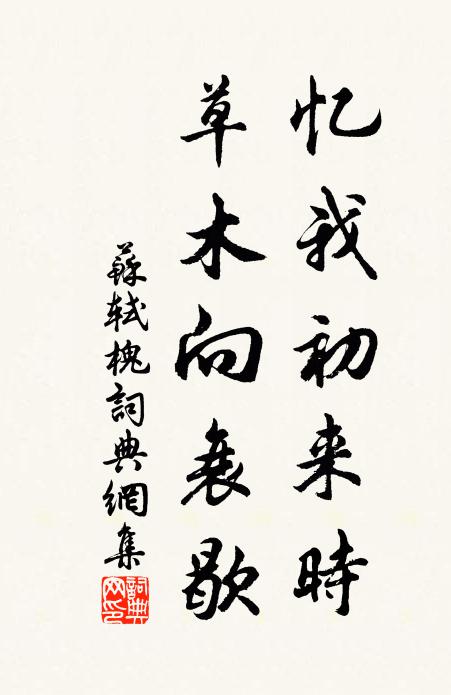 忆我初来時
草木向衰歇
蘇軾槐詞典網集
詞典网印